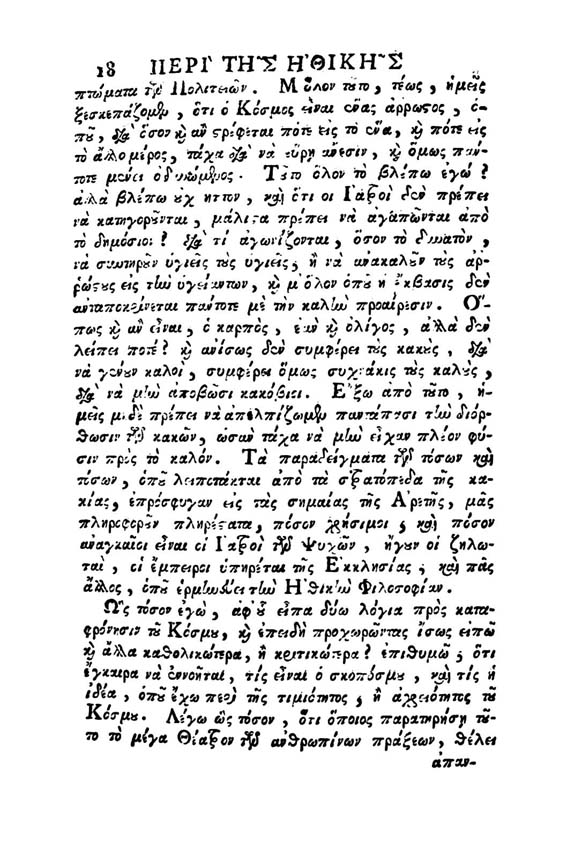 18 ΠΕΡΙ' ΤΗ~Σ Η'ΘΙΚΗ~Σ
πτώματα τῶν Πολιτειῶν. Μ' ὅλον τῦτο, τέως, ἡμεῖς
ξεσκεπάζομϑμ, ὅτι ὁ Κόσμος εἶναι ἕνας ἄρρωστος, ὁ-
πῦ, διὰ ὅσον καὶ ἂν στρέφεται πότε εἰς τὸ ἕνα, καὶ πότε εἰς
τὸ ἄλλο μέρος, τάχα διὰ νὰ εὕρῃ ἄνεσιν, καὶ ὅμως πάν-
τοτε μένει ὀδυνώμενος. Τῦτο ὅλον τὸ βλέπω ἐγώ?
ἀλλὰ βλέπω ὐχ ἧττον, καὶ ὅτι οἱ Ἰατροὶ δὲν πρέπει
νὰ κατηγορῦνται, μάλιστα πρέπει νὰ ἀγαπῶνται ἀπὸ
τὸ δημόσιον? διὰ τί ἀγωνίζονται, ὅσον τὸ δυνατὸν,
νὰ συντηρῦν ὑγιεῖς τὺς ὑγιεῖς, ἢ νὰ ἀνακαλῦν τὺς ἀρ-
ρώστυς εἰς τὴν ὑγείαν των, καὶ μ' ὅλον ὁπῦ ἡ ἔκβασις δὲν
ἀνταποκρίνεται πάντοτε μὲ τὴν καλὴν προαίρεσιν. Ὅ-
πως καὶ ἂν εἶναι, ὁ καρπὸς, ἐὰν καὶ ὀλίγος, ἀλλὰ δὲν
λείπει ποτέ? καὶ ἀνίσως δὲν συμφέρει τὺς κακὺς, διὰ
νὰ γένυν καλοὶ, συμφέρει ὅμως συχνάκις τὺς καλὺς,
διὰ νὰ μὴν ἀποβῶσι κακόβιοι. Ἔξω ἀπὸ τῦτο, ἡ-
μεῖς μηδὲ πρέπει νὰ ἀπελπίζωμεν παντάπασι τὴν διόρ-
θωσιν τῶν κακῶν, ὡσὰν τάχα νὰ μὴν εἶχαν πλέον φύ-
σιν πρὸς τὸ καλόν. Τὰ παραδείγματα τῶν τόσων καὶ
τόσων, ὁπῦ λειποτακταὶ ἀπὸ τὰ στρατόπεδα τῆς κα-
κίας, ἐπρόσφυγαν εἰς τὰς σημαίας τῆς Ἀρετῆς, μᾶς
πληροφορῦν πληρέστατα, πόσον χρήσιμοι, καὶ πόσον
ἀναγκαῖοι εἶναι οἱ Ἰατροὶ τῶν Ψυχῶν, ἤγυν οἱ ζηλω-
ταὶ, οἱ ἔμπειροι ὑπηρέται τῆς Ἐκκλησίας, καὶ πᾶς
ἄλλος, ὁπῦ ἑρμηνεύει τὴν Ἠθικὴν Φιλοσοφίαν.
Ὡς τόσον ἐγὼ, ἀφ' ῦ εἶπα δύω λόγια πρὸς κατα-
φρόνησιν τῦ Κόσμυ, καὶ ἐπειδὴ προχωρῶντας ἴσως εἰπῶ
καὶ ἄλλα καθολικώτερα, ἢ κριτικώτερα? ἐπιθυμῶ, ὅτι
ἔγκαιρα νὰ ἐννοῆται, τίς εἶναι ὁ σκοπόσμυ, καὶ τίς ἡ
ἰδέα, ὁπῦ ἔχω περὶ τῆς τιμιότητος, ἢ ἀχρειότητος τῦ
Κόσμυ. Λέγω ὡς τόσον, ὅτι ὅποιος παρατηρήσῃ τῦ-
το τὸ μέγα Θέατρον τῶν ἀνθρωπίνων πράξεων, θέλει
ἀπαν-